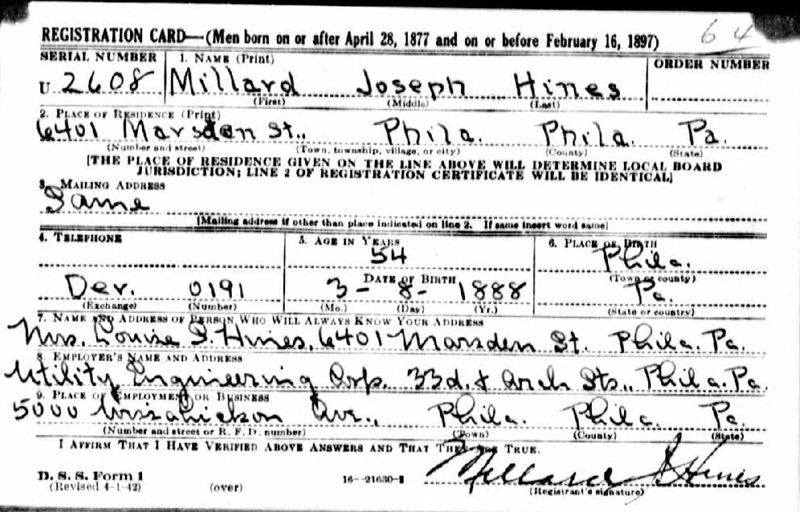 REGISTRATION CARD—(Men born on or after April 28, 1877 and on or before February 16, 1897) 64
SERIAL NUMBER 1. NAME (Print) ORDER NUMBER
U 2608 Millard Joseph Hines
(First) (Middle) (Last)
2. PLACE OF RESIDENCE (Print)
6401 Marsden St., Phila. Phila. Pa.
(Number and street) (Town, township, village, or city) (County) (State)
[THE PLACE OF RESIDENCE GIVEN ON THE LINE ABOVE WILL DETERMINE LOCAL BOARD
JURISDICTION; LINE 2 OF REGISTRATION CERTIFICATE WILL BE IDENTICAL]
3. MAILING ADDRESS
Same
[Mailing address if other than place indicated on line 2. If same insert word same]
4. TELEPHONE 5. AGE IN YEARS 6. PLACE OF BIRTH
54 Phila.
DATE OF BIRTH (Town or county)
Dev. 0191 3- 8- 1888 Pa.
(Exchange) (Number) (Mo.) (Day) (Yr.) (State or country)
7. NAME AND ADDRESS OF PERSON WHO WILL ALWAYS KNOW YOUR ADDRESS
Mrs. Louise S. Hines, 6401 Marsden St. Phila. Pa.
8. EMPLOYER'S NAME AND ADDRESS
Utility Engineering Corp. 33d. & Arch Sts., Phila. Pa.
9. PLACE OF EMPLOYMENT OR BUSINESS
5000 Wissahickon Ave., Phila. Phila. Pa.
(Number and street or R. F. D. number) (Town) (County) (State)
I AFFIRM THAT I HAVE VERIFIED ABOVE ANSWERS AND THAT THEY ARE TRUE.
D. S. S. Form 1
(Revised 4-1-42) (over) 16—21630-1 Millard J Hines
(Registrant's signature)